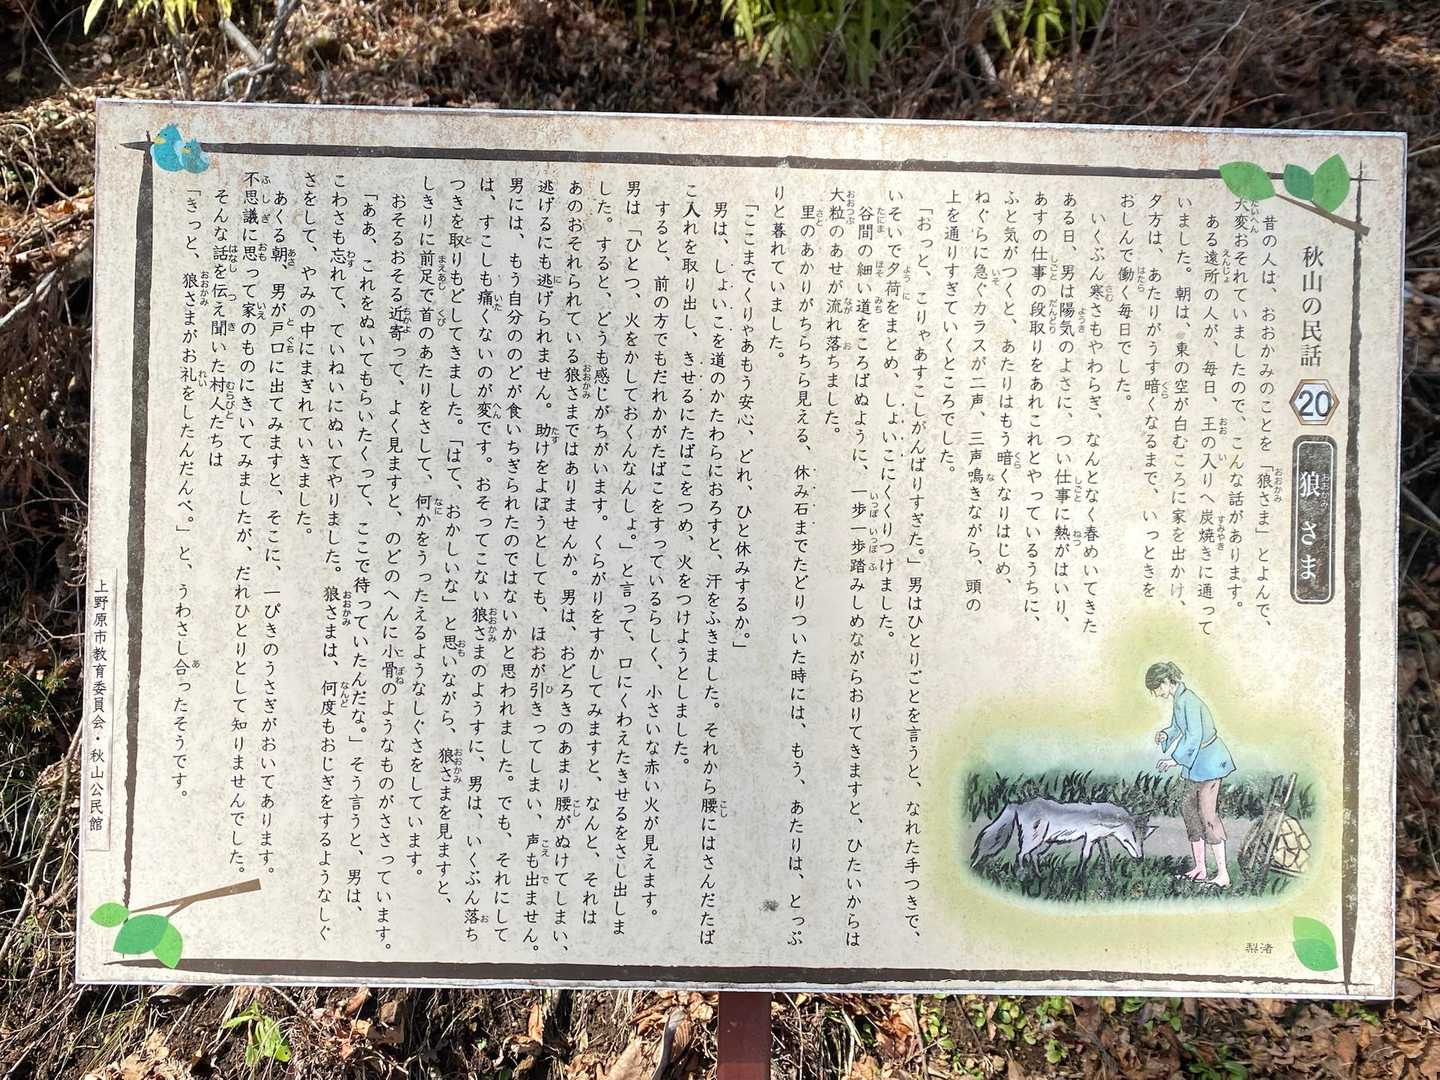 秋山の民話 20 狼さま
昔の人は、おおかみのことを「狼さま」とよんで、
大変おそれていましたので、こんな話があります。
ある遠所の人が、毎日、王の入りへ炭焼きに通って
いました。朝は、東の空が白むころに家を出かけ、
夕方は、あたりがうす暗くなるまで、いっときを
おしんで働く毎日でした。
いくぶん寒さもやわらぎ、なんとなく春めいてきた
ある日、男は陽気のよさに、つい仕事に熱がはいり、
あすの仕事の段取りをあれこれとやっているうちに、
ふと気がつくと、あたりはもう暗くなりはじめ、
ねぐらに急ぐカラスが二声、三声鳴きながら、頭の
上を通りすぎていくところでした。
「おっと、こりゃあすこしがんばりすぎた。」男はひとりごとを言うと、なれた手つきで、
いそいで夕荷をまとめ、しょいこにくくりつけました。
谷間の細い道をころばぬように、一歩一歩踏みしめながらおりてきますと、ひたいからは
大粒のあせが流れ落ちました。
里のあかりがちらちら見える、休み石までたどりついた時には、もう、あたりは、とっぷ
りと暮れていました。
「ここまでくりゃあもう安心、どれ、ひと休みするか。」
男は、しょいこを道のかたわらにおろすと、汗をふきました。それから腰にはさんだたば
こ入れを取り出し、きせるにたばこをつめ、火をつけようとしました。
すると、前の方でもだれかがたばこをすっているらしく、小さいな赤い火が見えます。
男は「ひとつ、火をかしておくんなんしょ。」と言って、口にくわえたきせるをさし出しま
した。すると、どうも感じがちがいます。くらがりをすかしてみますと、なんと、それは
あのおそれられている狼さまではありませんか。男は、おどろきのあまり腰がぬけてしまい、
逃げるにも逃げられません。助けをよぼうとしても、ほおが引きってしまい、声も出ません。
男には、もう自分ののどが食いちぎられたのではないかと思われました。でも、それにして
は、すこしも痛くないのが変です。おそってこない狼さまのようすに、男は、いくぶん落ち
つきを取りもどしてきました。「はて、おかしいな」と思いながら、狼さまを見ますと、
しきりに前足で首のあたりをさして、何かをうったえるようなしぐさをしています。
おそるおそる近寄って、よく見ますと、のどのへんに小骨のようなものがささっています。
「ああ、これをぬいてもらいたくって、ここで待っていたんだな。」そう言うと、男は、
こわさも忘れて、ていねいにぬいてやりました。狼さまは、何度もおじぎをするようなしぐ
さをして、やみの中にまぎれていきました。
あくる朝、男が戸口に出てみますと、そこに、一ぴきのうさぎがおいてあります。
不思議に思って家のものにきいてみましたが、だれひとりとして知りませんでした。
そんな話を伝え聞いた村人たちは
「きっと、狼さまがお礼をしたんだんべ。」と、うわさし合ったそうです。
梨渚
上野原市教育委員会・秋山公民館